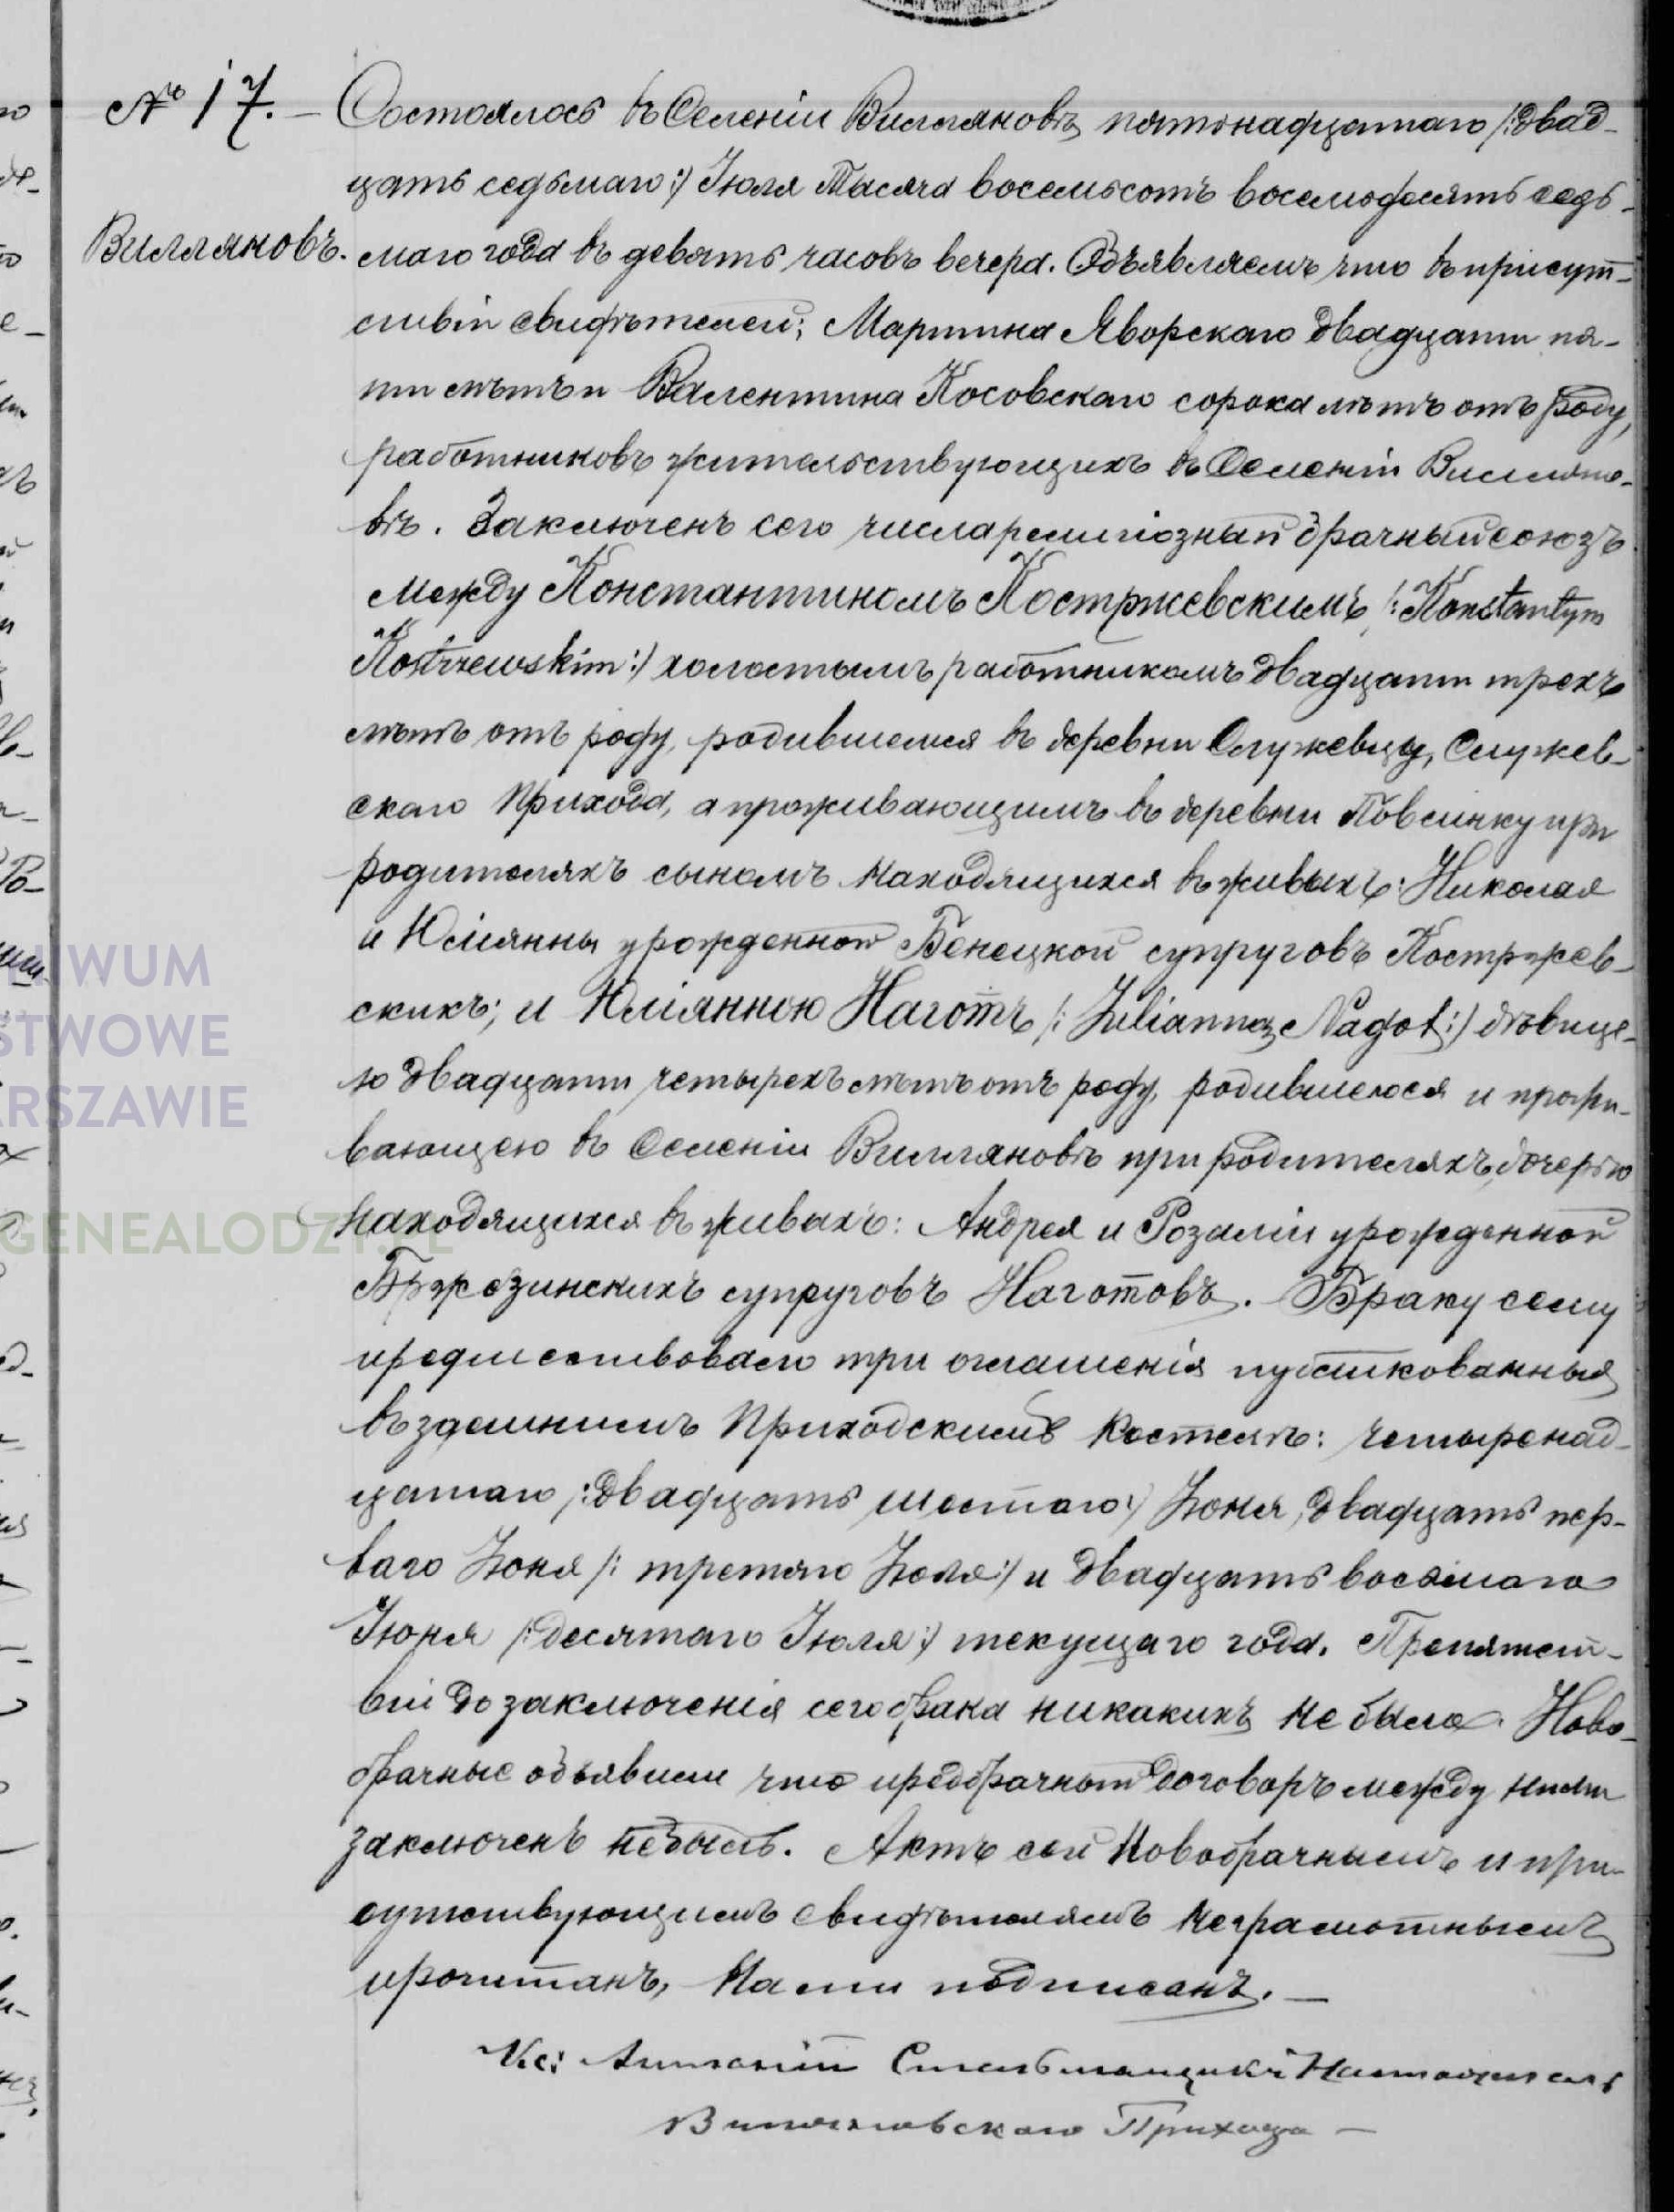 № 17. – Состоялось въ Селеніи Вилляновѣ пятнонадцатаго /:двад-
цать седьмаго:/ Іюля Тысяча восемьсотъ восемьдесятъ седь-
Вилляновъ. маго года въ девять часовъ вечера. Объявляемъ что въ присут-
ствіи свидѣтелей; Мартина Яворскаго двадцати пя-
ти лѣтъ и Валентина Косовскаго сорока лѣтъ отъ роду,
работниковъ жительствующихъ въ Селеніи Вилляно-
вѣ. Заключенъ сего числа религіозный брачный союзъ
между Константиномъ Костржевскимъ /:Konstantym
Kostrzewskim:/ холостымъ работникомъ двадцати трехъ
лѣтъ отъ роду, родившемся въ деревни Служевцу, Служев-
скаго Прихода, а проживающимъ въ деревни Повсинку при
родителяхъ сыномъ находящихся въ живыхъ: Николая
и Юліянны урожденной Бенецкой супруговъ Костржев-
скихъ; и Юліянною Наготъ /:Julianną Nagot:/ дѣвице-
ю двадцати четырехъ лѣтъ отъ роду, родившеюся и прожи-
вающею въ Селеніи Вилляновѣ при родителяхъ, дочерью
находящихся въ живыхъ: Андрея и Розаліи урожденной
Бржезинскихъ супруговъ Наготовъ. Браку сему
предшествовало три оглашенія публикованныя
въ здешнимъ Приходскимъ Костелѣ: четыренад-
цатаго /:двадцать шестаго:/ Іюня, двадцать пер-
ваго Іюня /:третяго Іюля:/ и двадцать восьмаго
Іюня /:десятаго Іюля:/ текущаго года. Препятст-
вій до заключенія сего брака никакихъ не было. Ново-
брачные объявили что предбрачный договоръ между ними
заключенъ небылъ. Актъ сей Новобрачнымъ и при-
сутствующимъ свидѣтелямъ неграмотнымъ
прочитанъ, Нами подписанъ. —
Кс: Антоній Настоятель
Вилляновскаго Прихода –
IWUM
STWOWE
RSZAWIE
GENEALODZY.PL